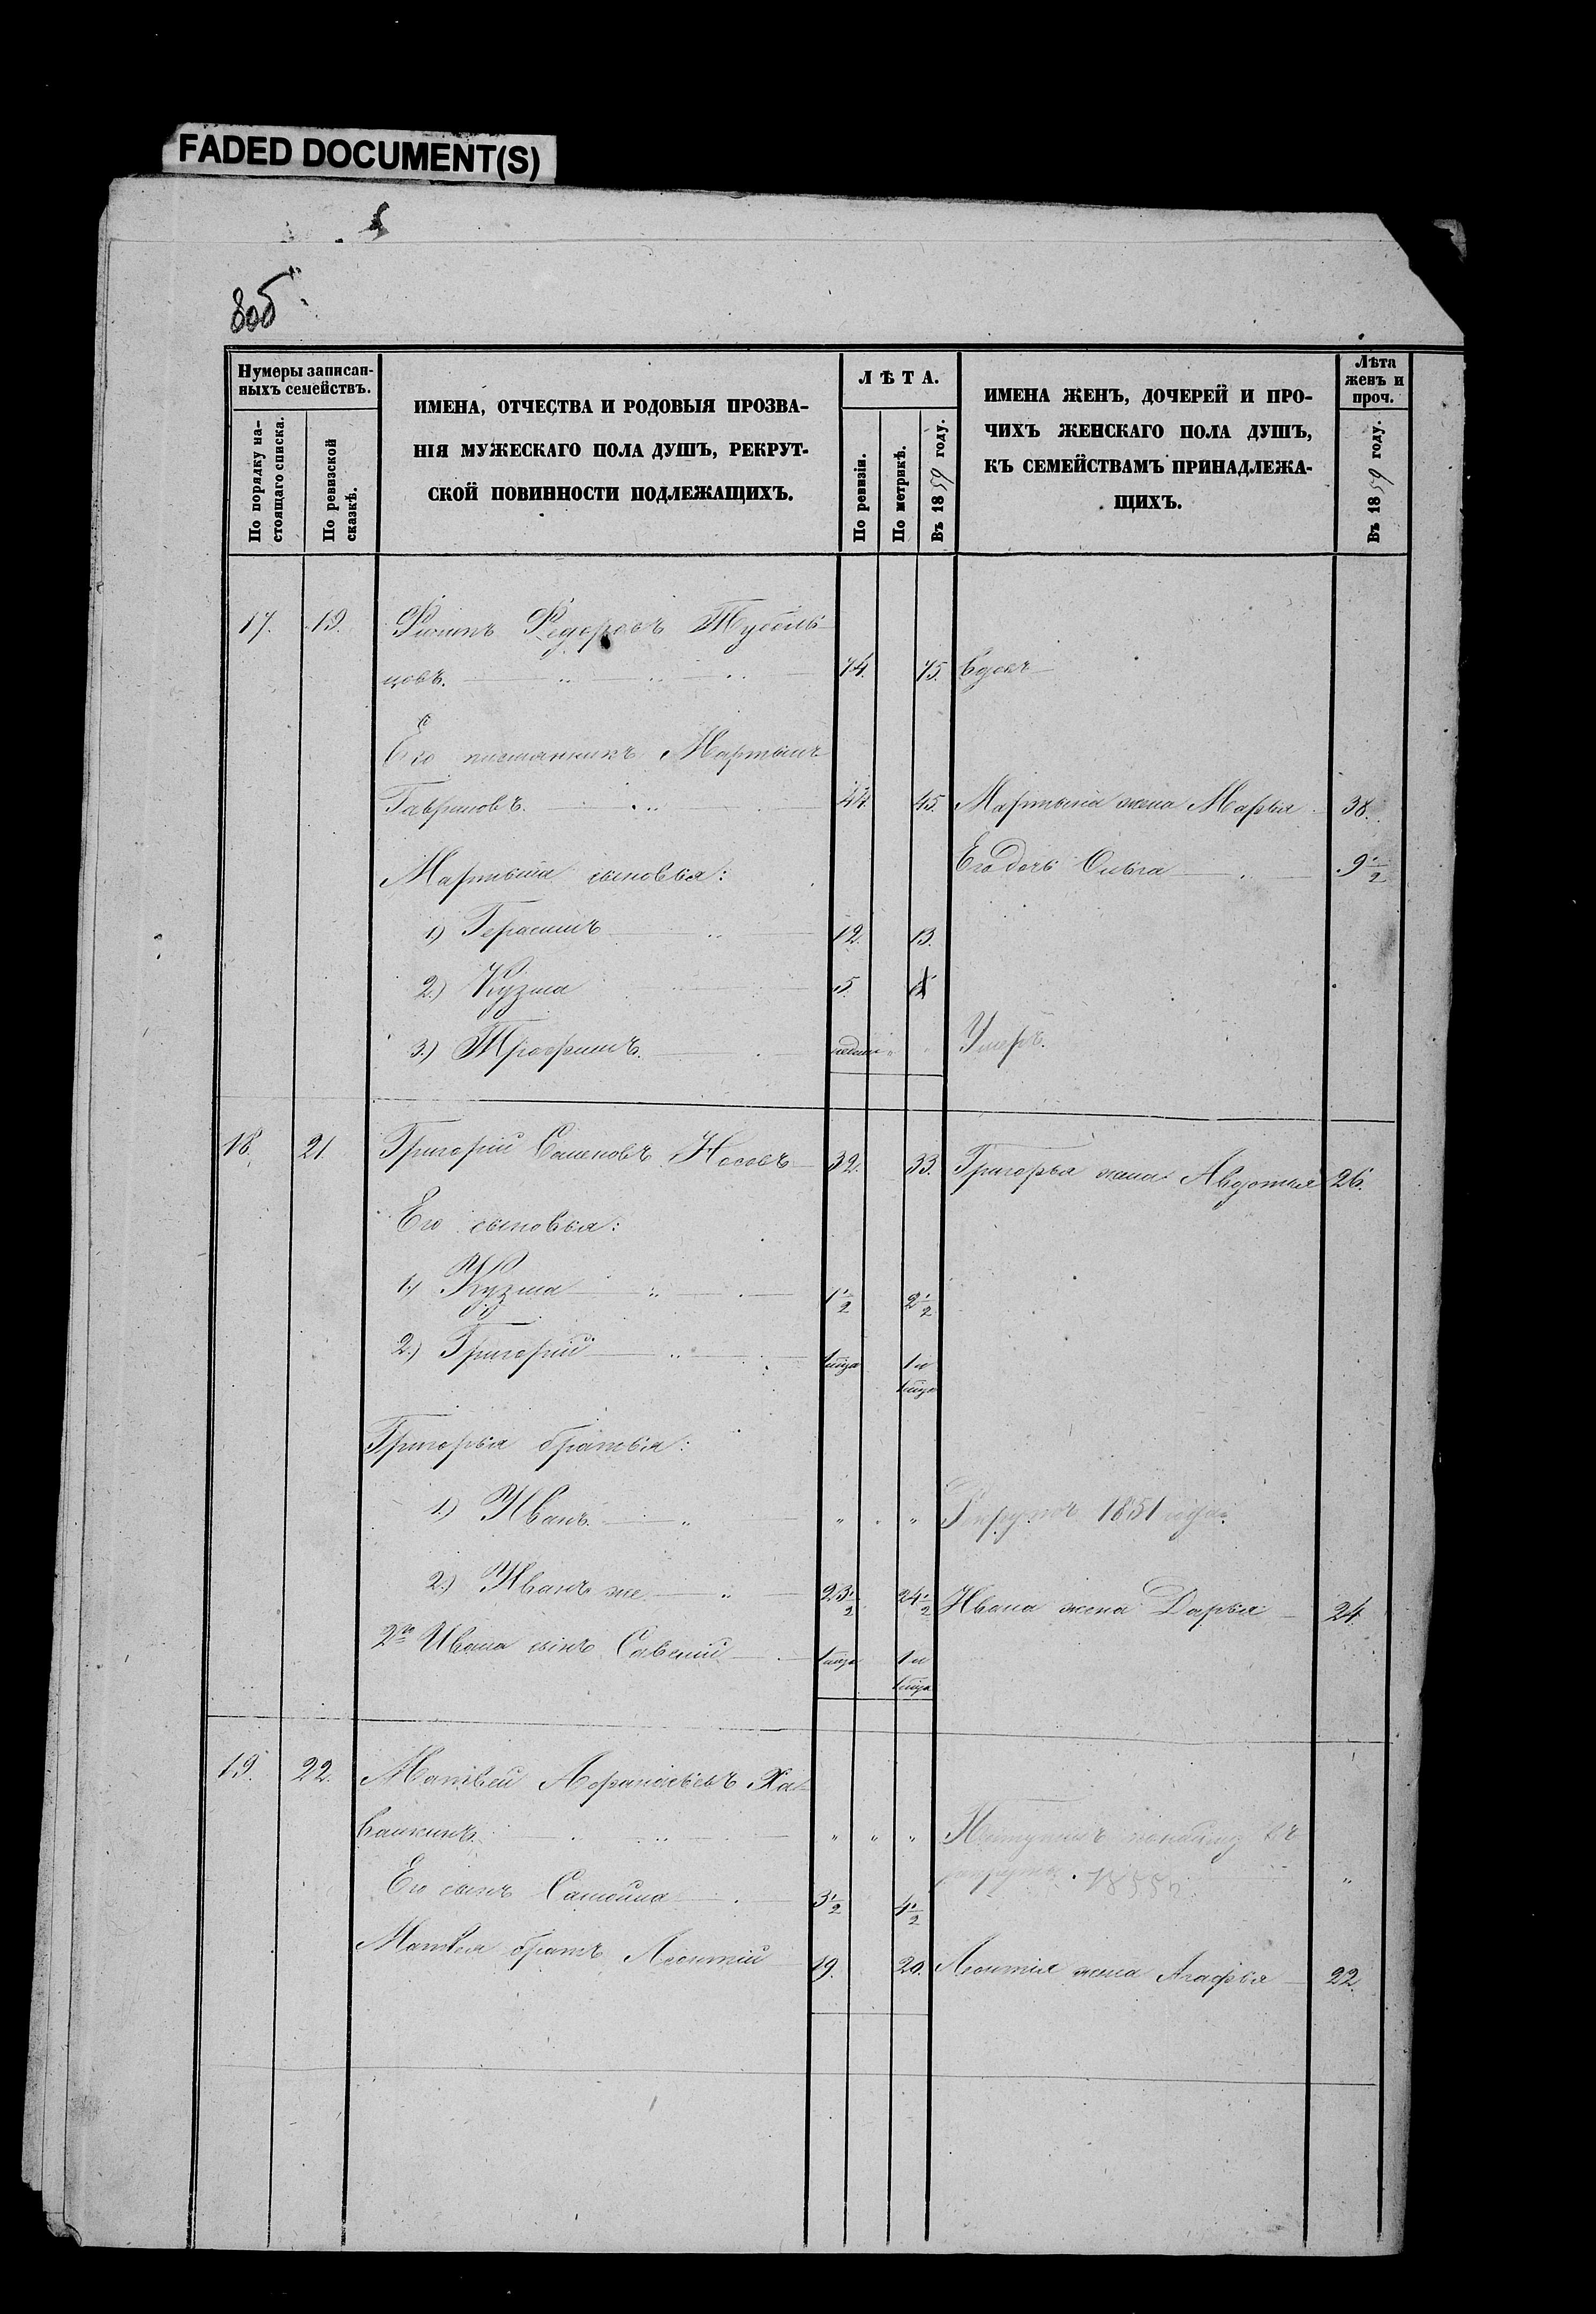 FADED DOCUMENT(S)
8об
Нумеры записан-
ныхъ семействъ.
По порядку на-
стоящаго списка.
По ревизской
сказкѣ.
ИМЕНА, ОТЧЕСТВА И РОДОВЫЯ ПРОЗВА-
НІЯ МУЖЕСКАГО ПОЛА ДУШЪ, РЕКРУТ-
СКОЙ ПОВИННОСТИ ПОДЛЕЖАЩИХЪ.
ЛѢТА.
По ревизіи.
По метрикѣ.
Въ 1859 году.
ИМЕНА ЖЕНЪ, ДОЧЕРЕЙ И ПРО-
ЧИХЪ ЖЕНСКАГО ПОЛА ДУШЪ,
КЪ СЕМЕЙСТВАМЪ ПРИНАДЛЕЖА-
ЩИХЪ.
Лѣта
женъ и
проч.
Въ 1859 году.
17. 19. Филипъ Федоровъ
цовъ. 74. 75. Вдовъ
Его племянникъ Мартынъ
Гавриловъ 44. 45. Мартына жена Марья 38.
Мартына сыновья: Его дочь 9 1/2
1.) Герасимъ 12. 13.
2.) Кузма 5.
3.) Трофимъ. недели " " Умеръ.
18. 21. Григорій Семеновъ Носовъ 32. 33. Григорья жена Авдотья 26.
Его сыновья:
1.) Кузма 1 1/2 2 1/2
2.) Григорій 1 1 и
Григорья братья:
1.) Иванъ " " " Рекрутъ 1851 года.
2.) Иванъ же 23 1/2 24 1/2 Ивана жена Дарья 24.
2го Ивана сынъ Савелій 1 1 и
19. 22. Матвей Афанасьевъ Ха-
" " " въ
1855 г. "
Его сынъ Самойла 3 1/2 4 1/2
Матвея братъ Леонтій 19. 20. Леонтія жена Агафья 22.